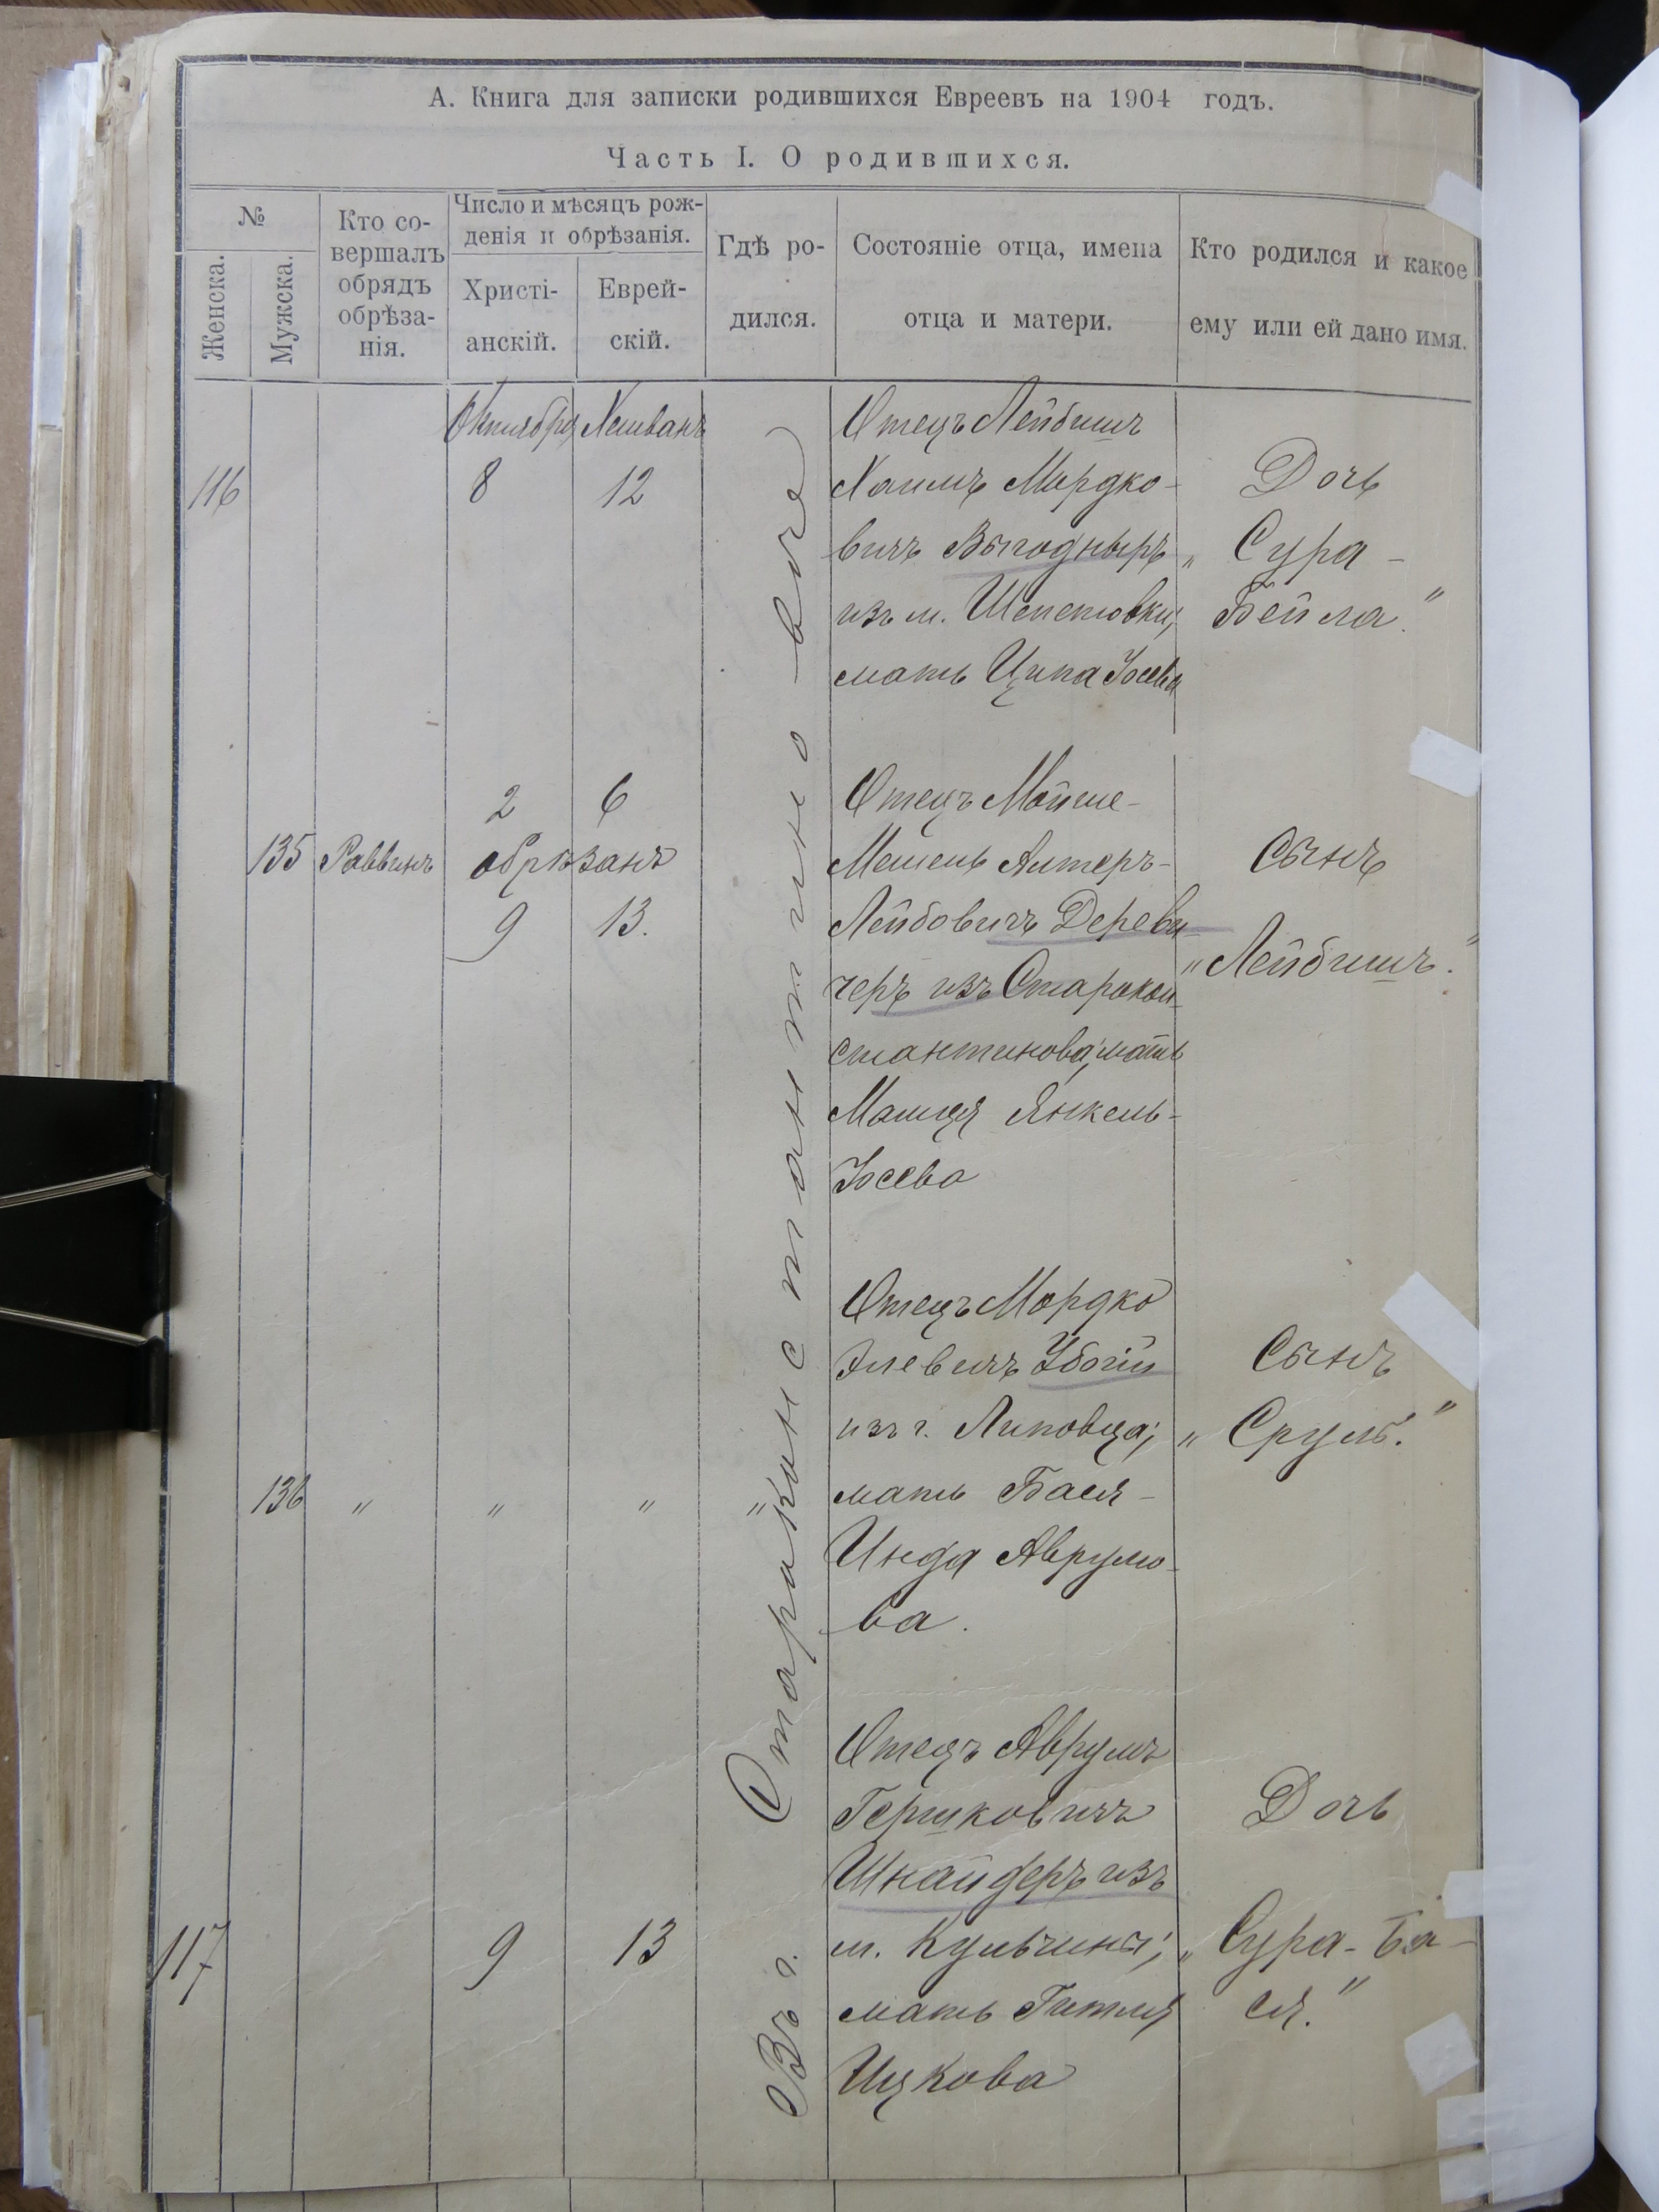 А. Книга для записки родившихся Евреевъ на 1904 годъ.
Часть I. О родившихся.
№
Женска.
Мужска.
Кто со-
вершалъ
обрядъ
обрѣза-
нія.
Число и мѣсяцъ рож-
денія и обрѣзанія.
Христі-
анскій.
Еврей-
скій.
Гдѣ ро-
дился.
Состояніе отца, имена
отца и матери.
Кто родился и какое
ему или ей дано имя.
Октябрь Хешванъ
116 8 12
Отецъ Лейбишъ
Хаимъ Мордко-
вичъ Выгодныръ
изъ м. Шепетовки,
мать Ципа Іосева
Дочь
„Сура-
Бейла."
Въ г. Староконстантиновѣ
2 6
135 Раввинъ обрѣзанъ
9 13.
Отецъ Мойше-
Мешель Алтеръ-
Лейбовичъ Дереви-
черъ изъ Старокон-
стантинова, мать
Малця Янкель-
Іосева
Сынъ
„Лейбишъ."
136 „ „ „ „
Отецъ Мордко
Элевичъ Убогій
изъ г. Липовца;
мать Бася-
Инда Аврумо-
ва.
Сынъ
„Сруль."
117 9 13
Отецъ Аврумъ
Гершковичъ
Шнайдеръ изъ
м. Кульчины;
мать Гитля
Ицкова
Дочь
„Сура-Ба-
ся."